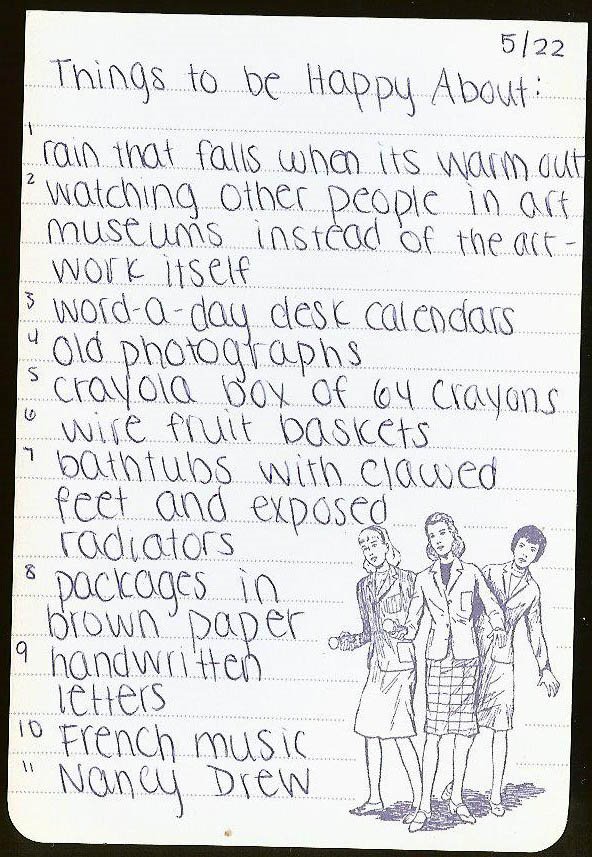 5/22
Things to be Happy About:
1 rain that falls when its warm out
2 watching other people in art
museums instead of the art-
work itself
3 word-a-day desk calendars
4 old photographs
5 crayola box of 64 crayons
6 wire fruit baskets
7 bathtubs with clawed
feet and exposed
radiators
8 packages in
brown paper
9 handwritten
letters
10 French music
11 Nancy Drew